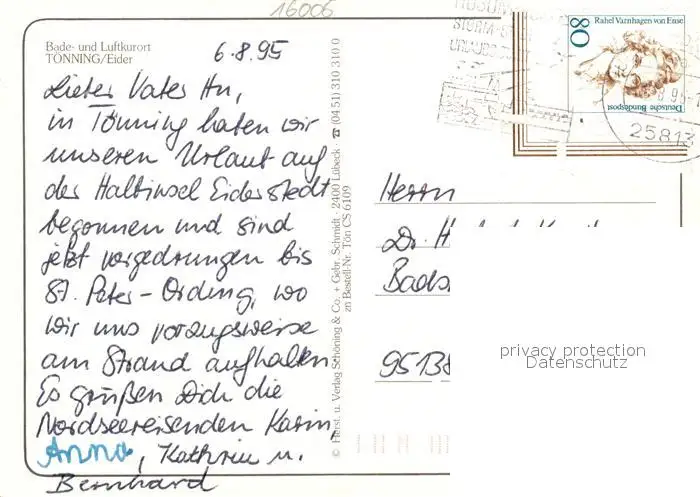 16006
Bade- und Luftkurort
TÖNNING/Eider
6.8.95
Lieber Vater Hn,
in Tönning haben wir
unseren Urlaub auf
der Halbinsel Eiderstedt
begonnen und sind
jetzt vorgedrungen bis
St. Peter-Ording, wo
wir uns vorzugsweise
am Strand aufhalten.
Es grüßen Dich die
Nordseereisenden Karin,
Anna, Kathrin u.
Bernhard
© Herst. u. Verlag Schöning & Co. + Gebr. Schmidt · 2400 Lübeck · ☎ (04 51) 310 310 0
zu Bestell-Nr. Tön CS 6109
HUSUM
STORM-S
URLAUBS
Rahel Varnhagen von Ense
80
Deutsche Bundespost
25813
Herrn
Dr. H
Bads
95138
privacy protection
Datenschutz